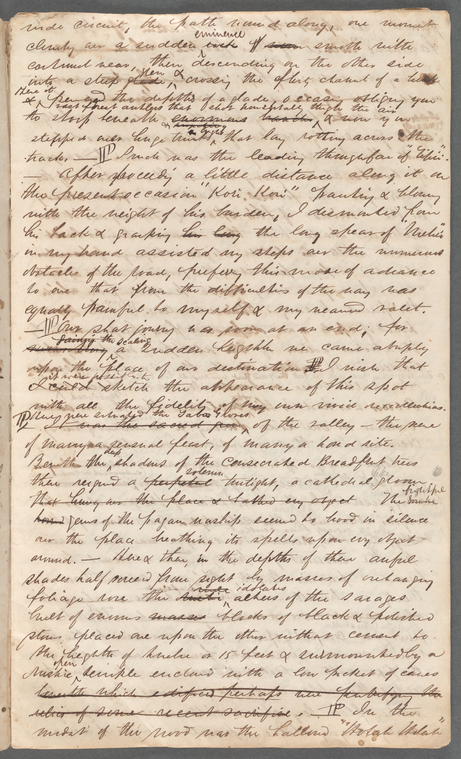 wide circuit, the path wound along, one moment
climbing over a sudden eminence smooth with
continued wear, then descending on the other side
into a steep glade, then & crossing the flinty channel of a brook
& pursued the depths of a glade, occasionally obliging you
to stoop beneath enormous & now you
stepped over huge trunks that lay rotting across the
track. — Such was the leading thoroughfare of "Tipii".
— After proceeding a little distance along it on
this present occasion "Kori-Kori" panting & blowing
with the weight of his burden, I dismounted from
his back & grasping his long the long spear of "Mehevi"
in my hand assisted my steps over the numerous
obstacles of the road, preferring this mode of advance
to one that from the difficulties of the way was
equally painful to myself & my wearied valet.
— Our short journey was soon at an end; for
scaling a sudden heighth we came abruptly
upon the place of our destination — I wish that
I could sketch the appearance of this spot
with all the fidelity of my own vivid recollections.
Here were situated the Taboo Groves
I was the sacred of the valley — the scene
of many a sensual feast, of many a horrid rite.
Beneath the deep shadows of the consecrated Breadfruit trees
there reigned a perpetual solemn twilight, a cathedral gloom
that hung over the place & bathed every object The frightful
genius of the pagan worship seemed to brood in silence
over the place breathing its spells upon every object
around. — Here & there, in the depths of their awful
shades half screened from sight by masses of overhanging
foliage rose the idolatrous altars of the savages
built of enormous masses blocks of black & polished
stone, placed one upon the other without cement to
the heighth of twelve or 15 feet & surmounted by a
rustic open temple enclosed with a low picket of canes
beneath which edifices perhaps were putrefying the
relics of some recent sacrifice. — In the
midst of the wood was the hallowed "Hoolah Hoolah"